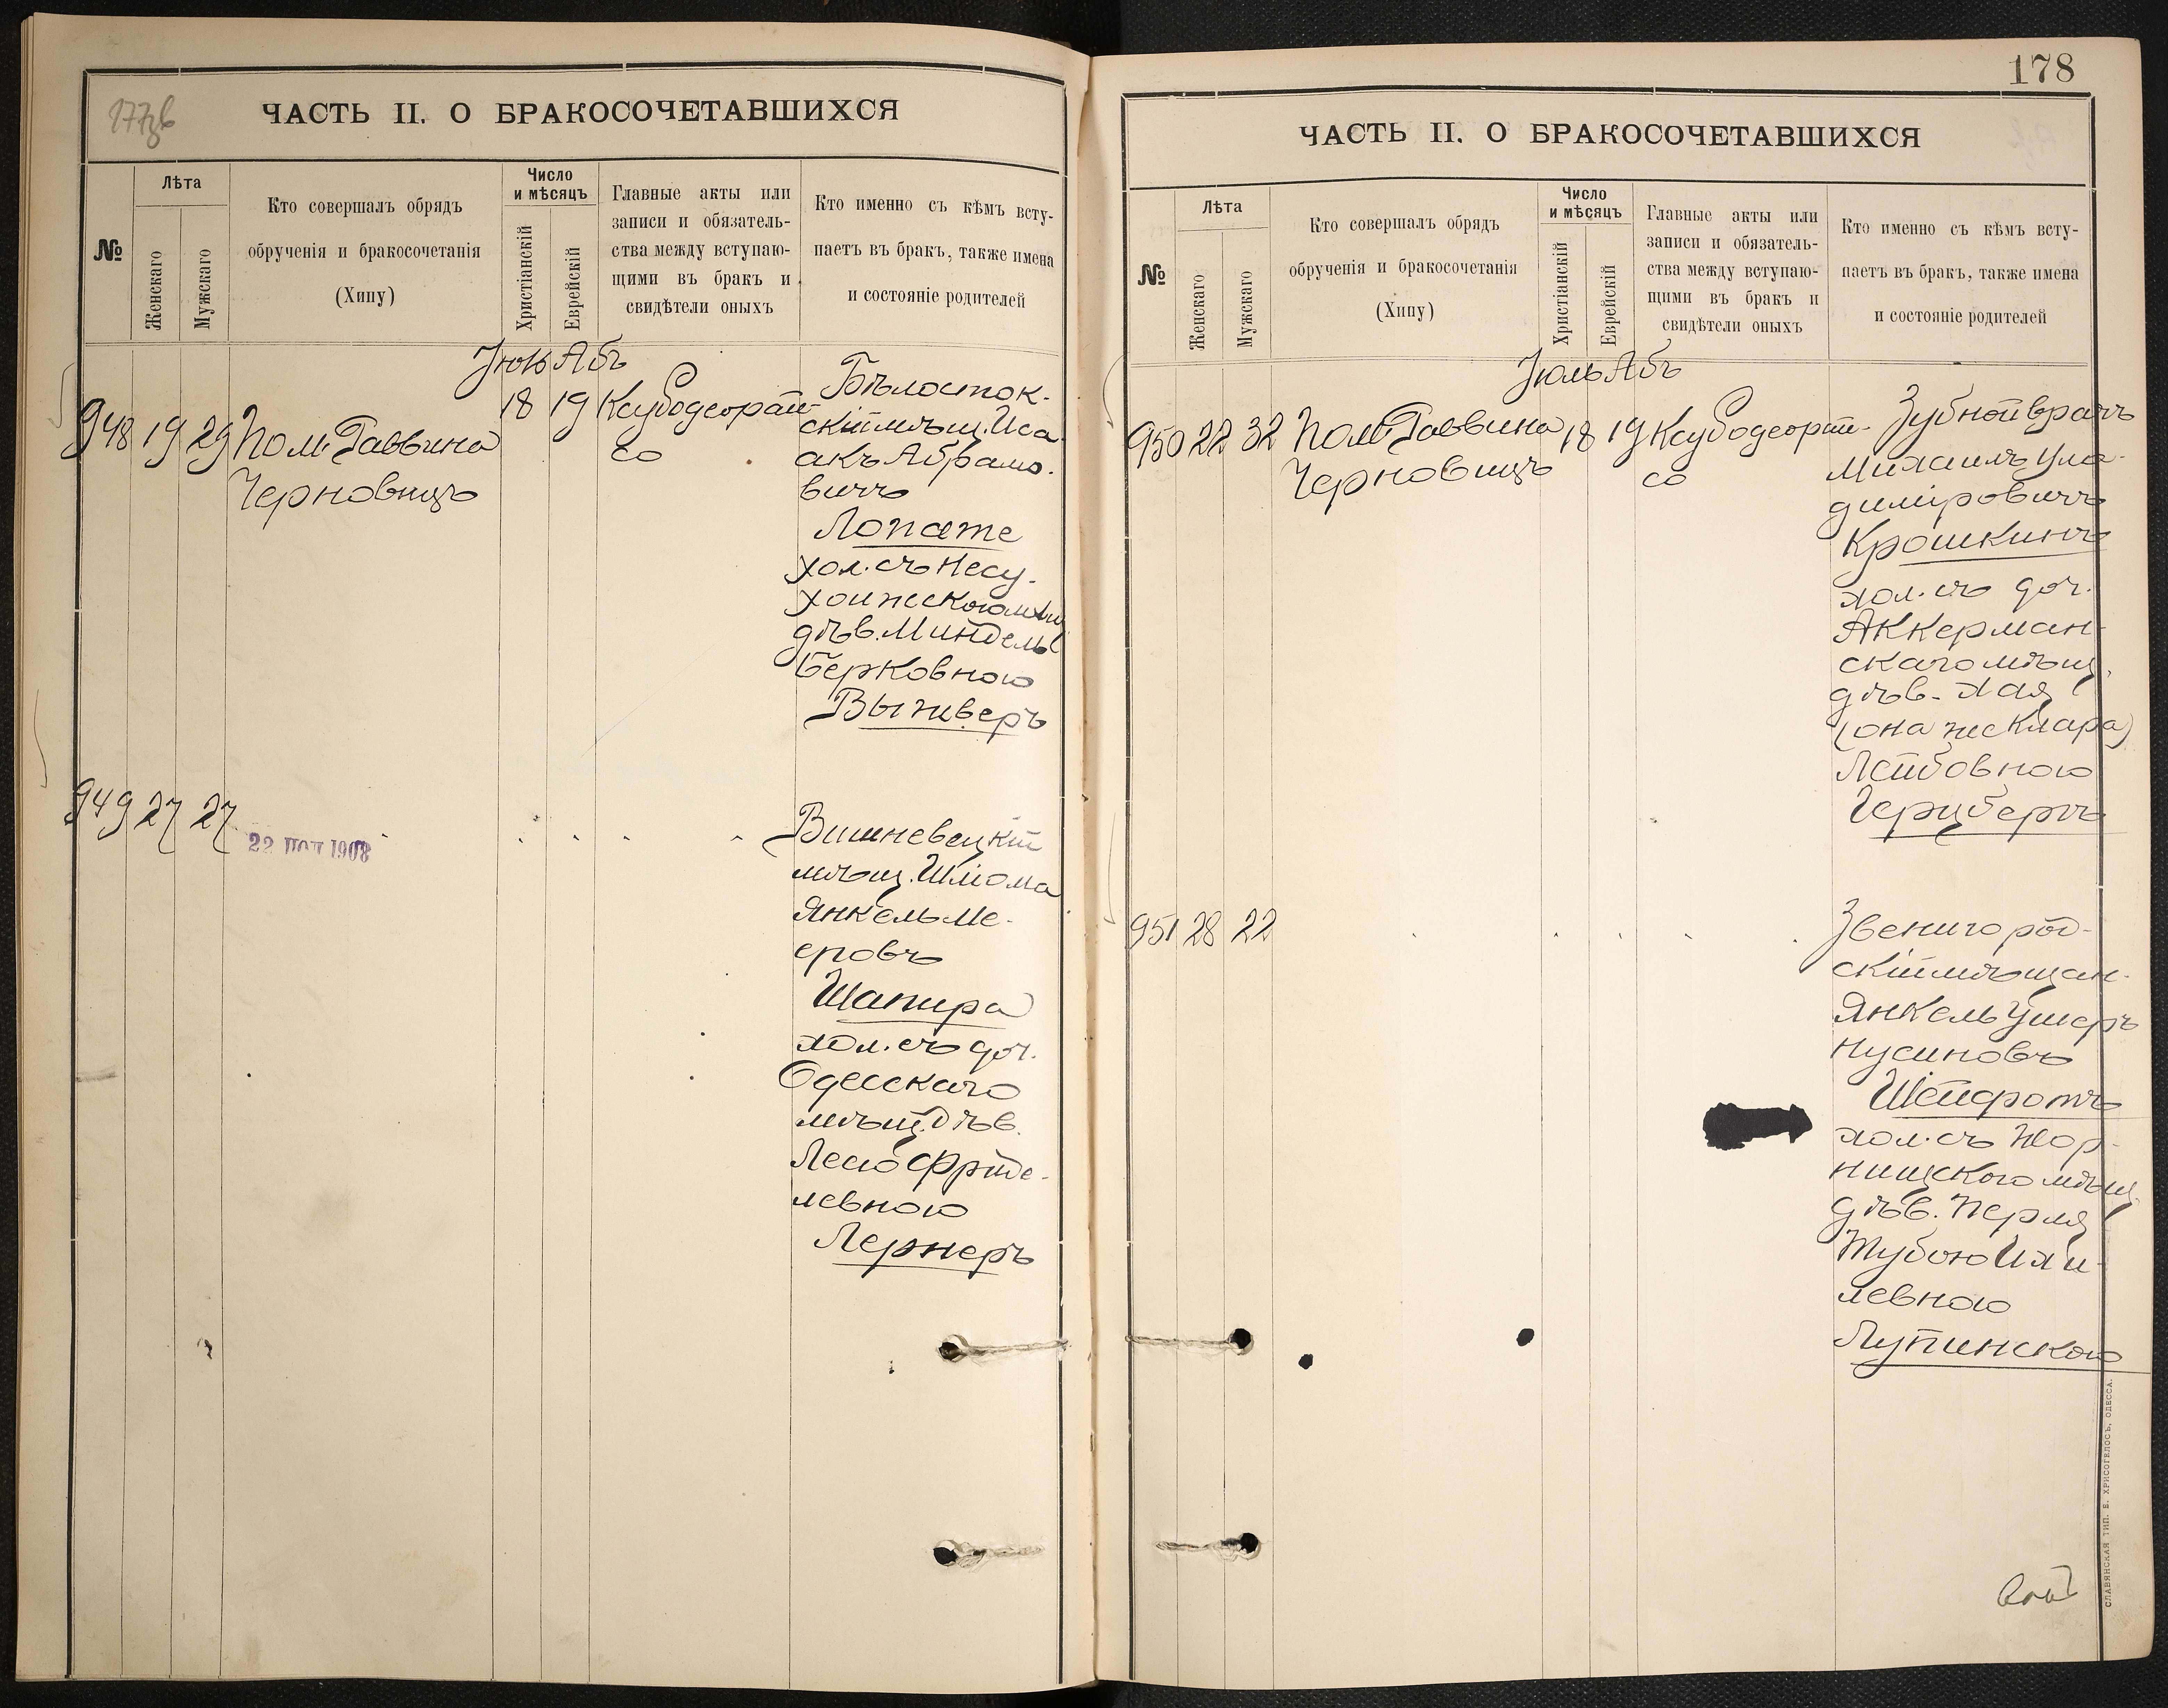 ЧАСТЬ II. О БРАКОСОЧЕТАВШИХСЯ
№
Лѣта
Женскаго
Мужскаго
Кто совершалъ обрядъ
обрученія и бракосочетанія
(Хипу)
Число
и мѣсяцъ
Христіанскій
Еврейскій
Главные акты или
записи и обязатель-
ства между вступаю-
щими въ бракъ и
свидѣтели оныхъ
Кто именно съ кѣмъ всту-
паетъ въ бракъ, также имена
и состояніе родителей
Абъ
948 19 29
Пом. Раввина
Черновицъ
18 19
со
Бѣлосток-
скій мѣщ. Иса
акъ Абрамо-
вичъ
Лопате
хол. съ Несу-
хоижскою мѣщ
дѣв. Миндель
Берковною
Выжверъ
949 27 27
22 1908
Вишневецкій
мѣщ. Шліома
Янкель Ме-
еровъ
Шапира
хол. съ доч.
Одесскаго
мѣщ. дѣв.
Лесю Фрѣде-
левною
Лернеръ
178
ЧАСТЬ II. О БРАКОСОЧЕТАВШИХСЯ
№
Лѣта
Женскаго
Мужскаго
Кто совершалъ обрядъ
обрученія и бракосочетанія
(Хипу)
Число
и мѣсяцъ
Христіанскій
Еврейскій
Главные акты или
записи и обязатель-
ства между вступаю-
щими въ бракъ и
свидѣтели оныхъ
Кто именно съ кѣмъ всту-
паетъ въ бракъ, также имена
и состояніе родителей
Іюль Абъ
950 22 32
Пом. Раввина
Черновицъ
18 19
со
Зубной врачъ
Михаилъ Ула-
диміровичъ
Крошкинъ
хол. съ доч.
Аккерман-
скаго мѣщ.
дѣв. Хая
(она же Клара)
Лейбовною
Герцбергъ
951 28 22
Звенигород-
скій мѣщан.
Янкель Ушеръ
Нусиновъ
Шейфотъ
хол. съ Жор-
нищскою мѣщ.
дѣв. Перля
Тубою Ихи-
левною
Лупинскою
СЛАВЯНСКАЯ ТИП. Е. ХРИСОГЕЛОСЪ, ОДЕССА.